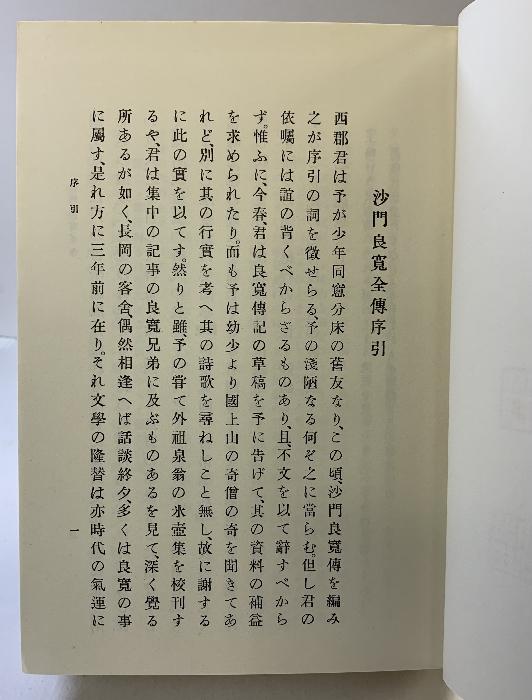 沙門良寬全傳序引
西郡君は予が少年同窓分床の舊友なり、この頃、沙門良寬傳を編み
之が序引の詞を徵せらる、予の淺陋なる何ぞ之に當らむ。但し君の
依囑には誼の背くべからざるものあり、且、不文を以て辭すべから
ず。惟ふに、今春、君は良寬傳記の草稿を予に告げて、其の資料の補益
を求められたり。而も予は幼少より國上山の奇僧の奇を聞きてあ
れど、別に其の行實を考へ其の詩歌を尋ねしこと無し、故に謝する
に此の實を以てす。然りと雖、予の嘗て外祖泉翁の氷壺集を校刊す
るや、君は集中の記事の良寬兄弟に及ぶものあるを見て、深く覺る
所あるが如く、長岡の客舍、偶然相逢へば話談終夕、多くは良寬の事
に屬す、是れ方に三年前に在り。それ文學の隆替は亦時代の氣運に
序引
一